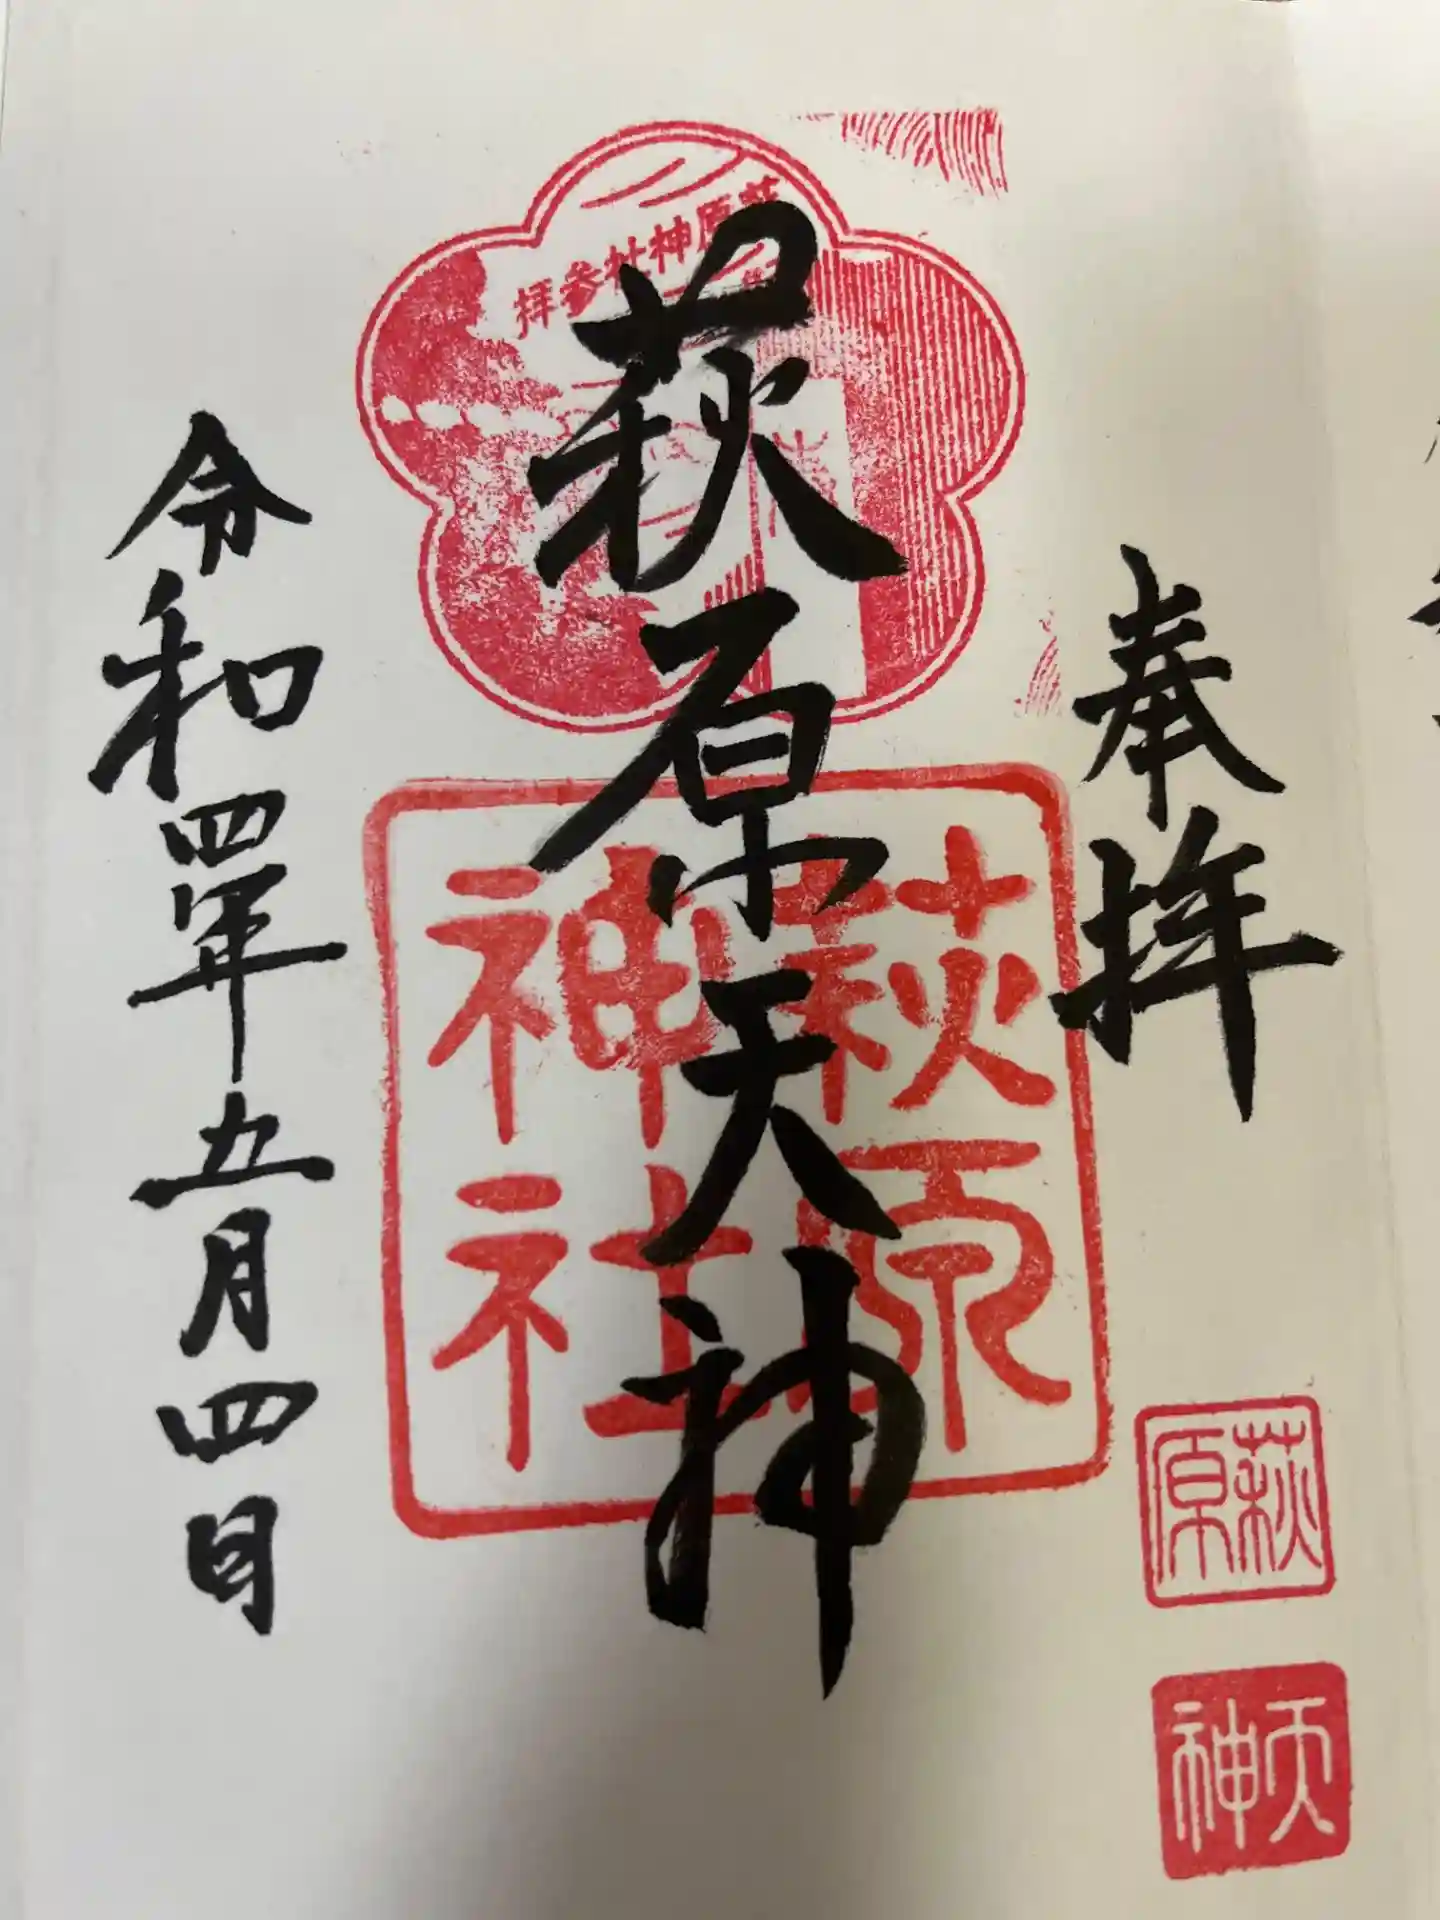 奉拝
萩原
天神
萩原天神
萩原神社参拝
萩原
神社
令和四年五月四日